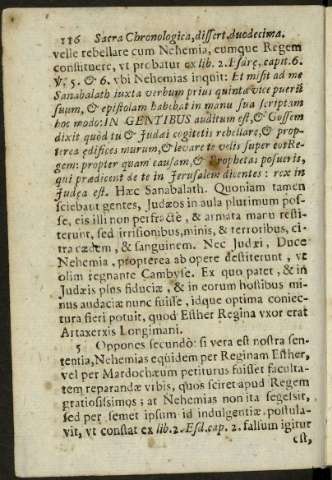 116 Sacra Chronologica, dissert. duodecima.
velle rebellare cum Nehemia, eumque Regem
constituere, vt probatur ex lib. 2. Esdræ, capit. 6.
℣. 5. & 6. vbi Nehemias inquit: Et misit ad me
Sanabalath iuxta verbum prius quinta vice puerũ
suum, & epistolam habebat in manu sua scriptam
hoc modo: IN GENTIBUS auditum est, & Gossem
dixit quòd tu & Iudæi cogitetis rebellare, & prop-
terea ædifices murum, & leuare te velis super eos Re-
gem: propter quam causam, & Prophetas posueris,
qui prædicent de te in Jerusalem dicentes: rex in
Judæa est. Hæc Sanabalath. Quoniam tamen
sciebant gentes, Judæos in aula plurimum pos-
se, eis illi non perfractè, & armata manu resti-
terunt, sed irrisionibus, minis, & terroribus, ci-
tra cædem, & sanguinem. Nec Judæi, Duce
Nehemia, propterea ab opere destiterunt, vt
olim regnante Cambyse. Ex quo patet, & in
Judæis plus fiduciæ, & in eorum hostibus mi-
nus audaciæ nunc fuisse, idque optima coniec-
tura fieri potuit, quod Esther Regina vxor erat
Artaxerxis Longimani.
5 Oppones secundò: si vera est nostra sen-
tentia, Nehemias equidem per Reginam Esther,
vel per Mardochæum petiturus fuisset faculta-
tem reparandæ vrbis, quos sciret apud Regem
gratiosissimos; at Nehemias non ita segessit,
sed per semet ipsum id indulgentiæ postula-
vit, vt constat ex lib. 2. Esd. cap. 2. falsum igitur
est,